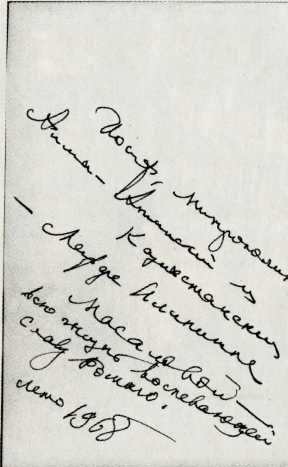 Иосиф, Митрополит
Алма-Атинский и
Казахстанский
— Лидре Ильиничне
Масаловой —
всю жизнь воспевающей
славу Божию!
лето 1968